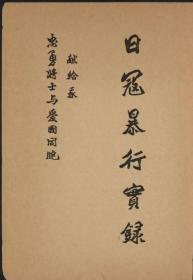 日寇暴行實録
献給我
忠勇將士与爱國同胞